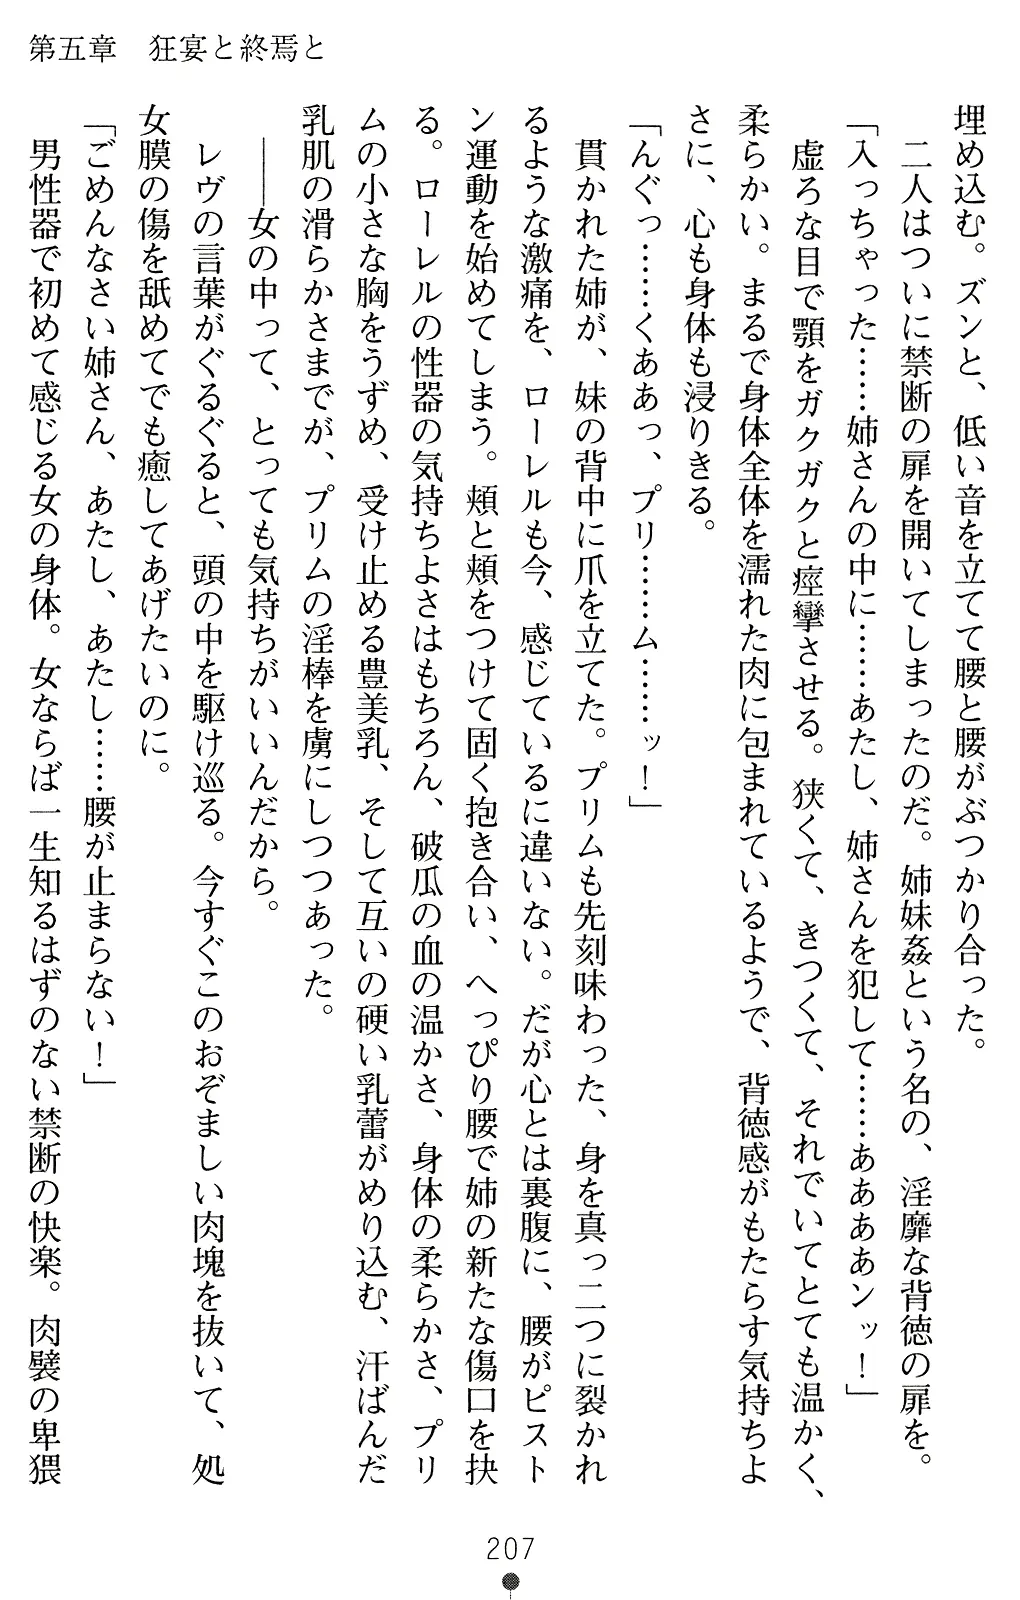 第五章　狂宴と終焉と
埋め込む。ズンと、低い音を立てて腰と腰がぶつかり合った。
　二人はついに禁断の扉を開いてしまったのだ。姉妹姦という名の、淫靡な背徳の扉を。
「入っちゃった……姉さんの中に……あたし、姉さんを犯して……ああああンッ！」
　虚ろな目で顎をガクガクと痙攣させる。狭くて、きつくて、それでいてとても温かく、
柔らかい。まるで身体全体を濡れた肉に包まれているようで、背徳感がもたらす気持ちよ
さに、心も身体も浸りきる。
「んぐっ……くああっ、プリ……ム……ッ！」
　貫かれた姉が、妹の背中に爪を立てた。プリムも先刻味わった、身を真っ二つに裂かれ
るような激痛を、ローレルも今、感じているに違いない。だが心とは裏腹に、腰がピスト
ン運動を始めてしまう。頬と頬をつけて固く抱き合い、へっぴり腰で姉の新たな傷口を抉
る。ローレルの性器の気持ちよさはもちろん、破瓜の血の温かさ、身体の柔らかさ、プリ
ムの小さな胸をうずめ、受け止める豊美乳、そして互いの硬い乳蕾がめり込む、汗ばんだ
乳肌の滑らかさまでが、プリムの淫棒を虜にしつつあった。
　――女の中って、とっても気持ちがいいんだから。
　レヴの言葉がぐるぐると、頭の中を駆け巡る。今すぐこのおぞましい肉塊を抜いて、処
女膜の傷を舐めてでも癒してあげたいのに。
「ごめんなさい姉さん、あたし、あたし……腰が止まらない！」
　男性器で初めて感じる女の身体。女ならば一生知るはずのない禁断の快楽。肉襞の卑猥
207